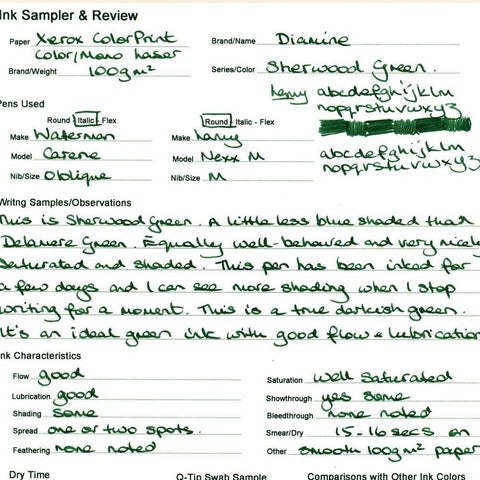 Ink Sampler & Review
Paper Xerox ColorPrint Brand/Name Diamine
Color/Mono Laser
Brand/Weight 100gm² Series/Color Sherwood Green.
Lamy abcdefghijklm
nopqrstuvwxyz
Pens Used
Round - Italic - Flex Round - Italic - Flex
Make Waterman Make Lamy
abcdefghijklm
Model Carene Model Nexx M
nopqrstuvwxyz
Nib/Size Oblique Nib/Size M
Writng Samples/Observations
This is Sherwood Green. A little less blue shaded that
Delamere Green. Equally well-behaved and very nicely
saturated and shaded. This pen has been inked for
a few days and I can see more shading when I stop
writing for a moment. This is a true darkish green.
It's an ideal green ink with good flow & lubrication
Ink Characteristics
Flow good Saturation well saturated
Lubrication good Showthrough yes some
Shading some Bleedthrough none noted
Spread one or two spots. Smear/Dry 15-16 secs on
Feathering none noted Other smooth 100gm² paper
Dry Time Q-Tip Swab Sample Comparisons with Other Ink Colors